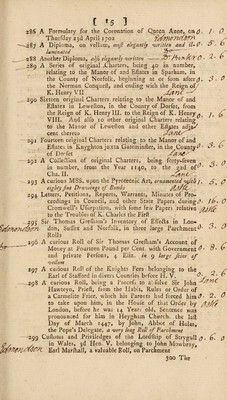 [ 15 ]
286 A Formulary for the Coronation of Queen Anne, on 0. 1. 0
Thursday 23d April 1702 Edmondson
287 A Diploma, on vellum, most elegantly written and il- 0. 6
luminated
288 Another Diploma, also elegantly written 2. 6
289 A Series of original Charters, being 40 in number,
relating to the Manor of and Estates in Sparham, in
the County of Norfolk, beginning at or soon after
the Norman Conquest, and ending with the Reign of
K. Henry VI. Lane
290 Sixteen original Charters relating to the Manor of and
Estates in Leweston, in the County of Dorset, from
the Reign of K. Henry III. to the Reign of K. Henry
VIII. And also 10 other original Charters relating
to the Manor of Leweston and other Estates adja-
cent thereto Lane
291 Fourteen original Charters relating to the Manor of and
Estates in Knyghton juxta Germinster, in the County
of Dorset Lane
292 A Collection of original Charters, being forty-seven
in number, from the Year 1140, to the 33d of
Cha. II. Lane
293 A curious MSS. upon the Pyrotecnic Art, ornamented with
eighty six Drawings of Bombs Astle
294 Letters, Petitions, Reports, Warrants, Minutes of Pro-
ceedings in Council, and other State Papers during
Cromwell's Usurpation, with some few Papers relative
to the Troubles of K. Charles the First
295 Sir Thomas Gresham's Inventory of Effects in Lon-
don, Sussex and Norfolk, in three large Parchment
Rolls
296 A curious Roll of Sir Thomas Gresham's Account of
Money at Fourteen Pound per Cent. with Government
and private Persons, 4 Eliz. in 9 large skins of
vellum
297 A curious Roll of the Knights Fees belonging to the
Earl of Stafford in divers Counties before H. V.
298 A curious Roll, being a Process to absolve Sir John
Hawteyn, Priest, from the Habit, Rules or Order of
a Carmelite Frier, which his Parents had forced him
to take upon him, in the House of that Order by
London, before he was 14 Years old. Sentence was
pronounced for him in Heygham Church, the last
Day of March 1447, by John, Abbot of Hulm,
the Pope's Delegate; a very long Roll of Parchment
299 Customs and Privileges of the Lordship of Strygull
in Wales, 3d Hen. V. belonging to John Mowbray,
Earl Marshall, a valuable Roll, on Parchment
300 The